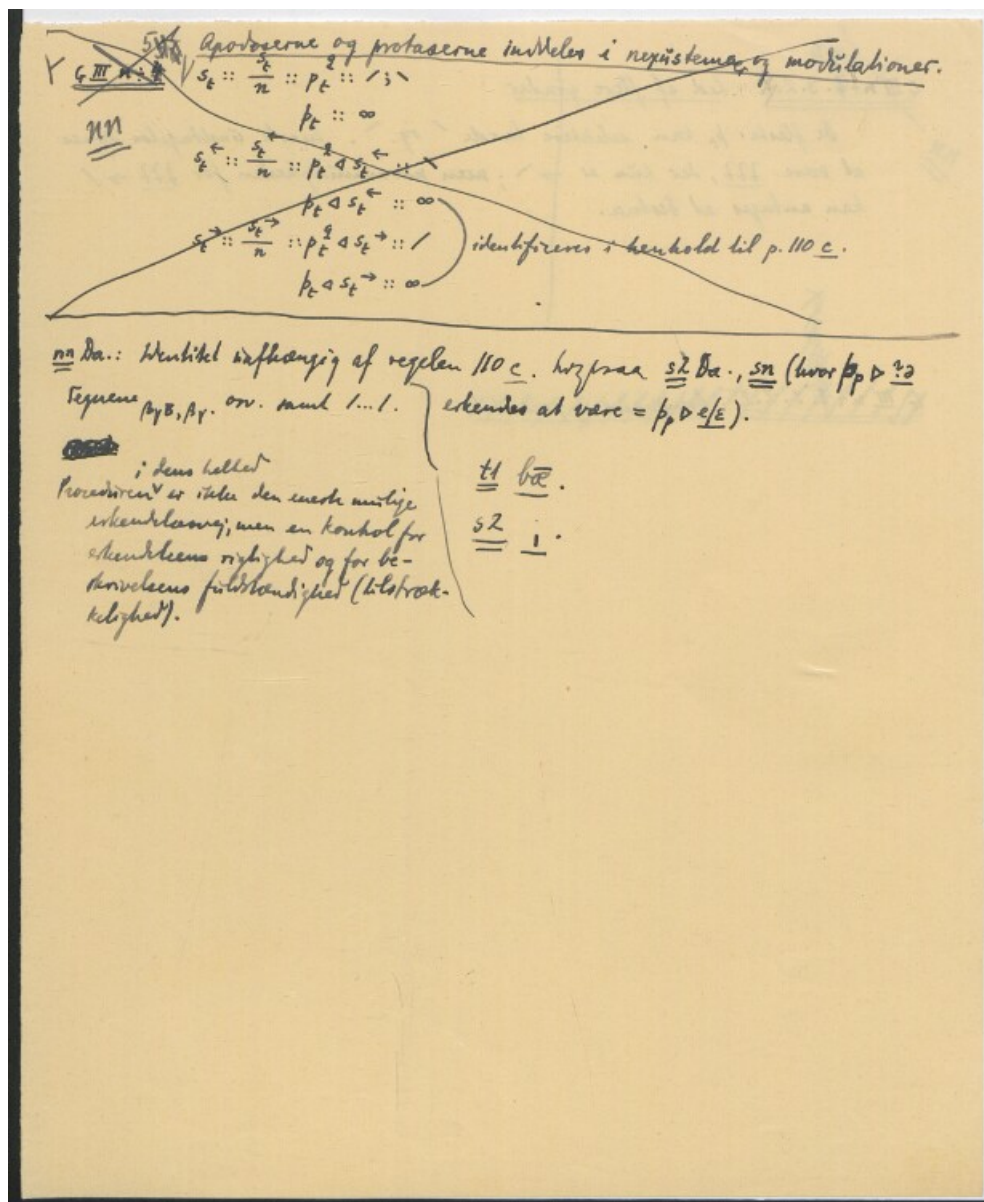 Apodoserne og protaserne inddeles i nexustemaer og modulationer.
G III
nn
s_t :: s_t/n :: p_t^2 :: / ; \
p_t :: ∞
s_t^← :: s_t^←/n :: p_t^2 ◁ s_t^← :: \
p_t ◁ s_t^← :: ∞
s_t^→ :: s_t^→/n :: p_t^2 ◁ s_t^→ :: /
p_t ◁ s_t^→ :: ∞
identificeres i henhold til p. 110 c.
nn Da.: Identitet uafhængig af regelen 110 c. s2 Da., sn (hvor þ_p ▷ ʔə
Tegnene βγB, βγ. osv. samt /.../.
erkendes at være = þ_p ▷ e/ɛ).
i dens helhed
Proceduren er ikke den eneste mulige
erkendelsesvej, men en kontrol for
erkendelsens rigtighed og for be-
skrivelsens fuldstændighed (tilstræk-
kelighed).
t1 bæ.
s2 i.